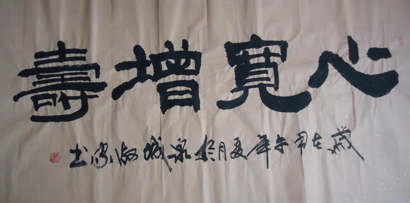 心寬增壽
歲在甲午年夏月於泉城书